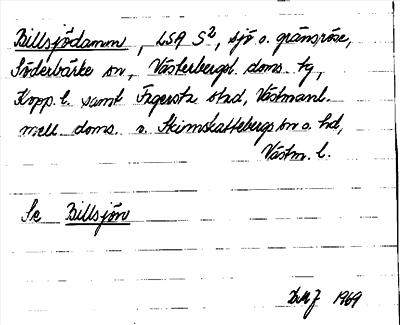 Billsjödamm, LSA S2, sjö o. gränsröse,
Söderbärke sn, Västerbergsl. doms. tg,
Kopp. l. samt Fagersta stad, Västmanl.
mell. doms. o. Skinnskattebergs sn o. hd,
Västm. l.
Se Billsjön
1969